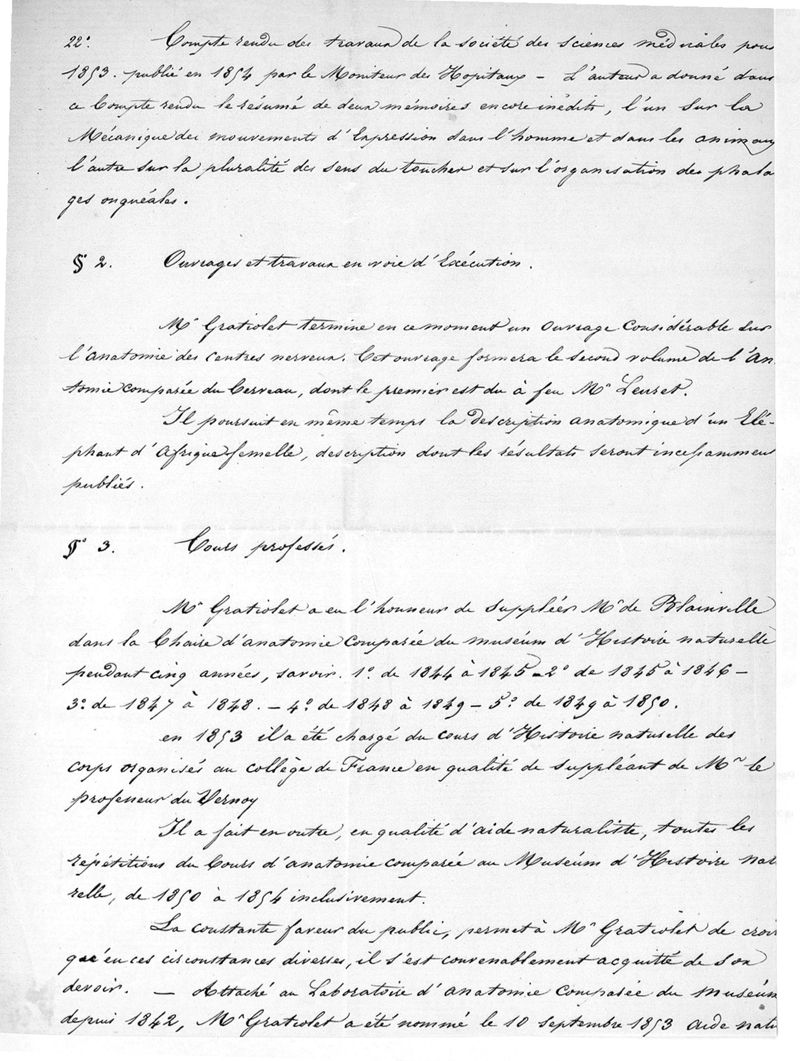 22° Compte rendu des travaux de la société des sciences médicales pour
1853. publié en 1854 par le Moniteur des Hopitaux – L'auteur a donné dans
ce Compte rendu le résumé de deux mémoires encore inédits, l'un sur la
Mécanique des mouvements d'Expression dans l'homme et dans les animaux
l'autre sur la pluralité des sens du toucher et sur l'organisation des phala
ges onguéales.
§ 2. Ouvrages et travaux en voie d'Exécution.
Mr Gratiolet termine en ce moment un ouvrage considérable sur
l'anatomie des centres nerveux. Cet ouvrage formera le second volume de l'An
tomie comparée du Cerveau, dont le premier est du à feu Mr Leuret.
Il poursuit en même temps la description anatomique d'un Elé-
phant d'Afrique femelle, description dont les résultats seront incessamment
publiés.
§ 3. Cours professés.
Mr Gratiolet a eu l'honneur de suppléer Mr de Blainville
dans la Chaire d'anatomie comparée du muséum d'Histoire naturelle
pendant cinq années, savoir. 1° de 1844 à 1845 – 2° de 1845 à 1846 –
3° de 1847 à 1848. – 4° de 1848 à 1849 – 5° de 1849 à 1850.
en 1853 il a été chargé du cours d'Histoire naturelle des
corps organisés au collège de France en qualité de suppléant de Mr le
professeur du Vernoy
Il a fait en outre, en qualité d'aide naturaliste, toutes les
répétitions du Cours d'anatomie comparée au Muséum d'Histoire nat
relle, de 1850 à 1854 inclusivement.
La constante faveur du public, permet à Mr Gratiolet de croir
qu'en ces circonstances diverses, il s'est convenablement acquitté de son
devoir. – Attaché au Laboratoire d'anatomie comparée du muséum
depuis 1842, Mr Gratiolet a été nommé le 10 septembre 1853 aide natu